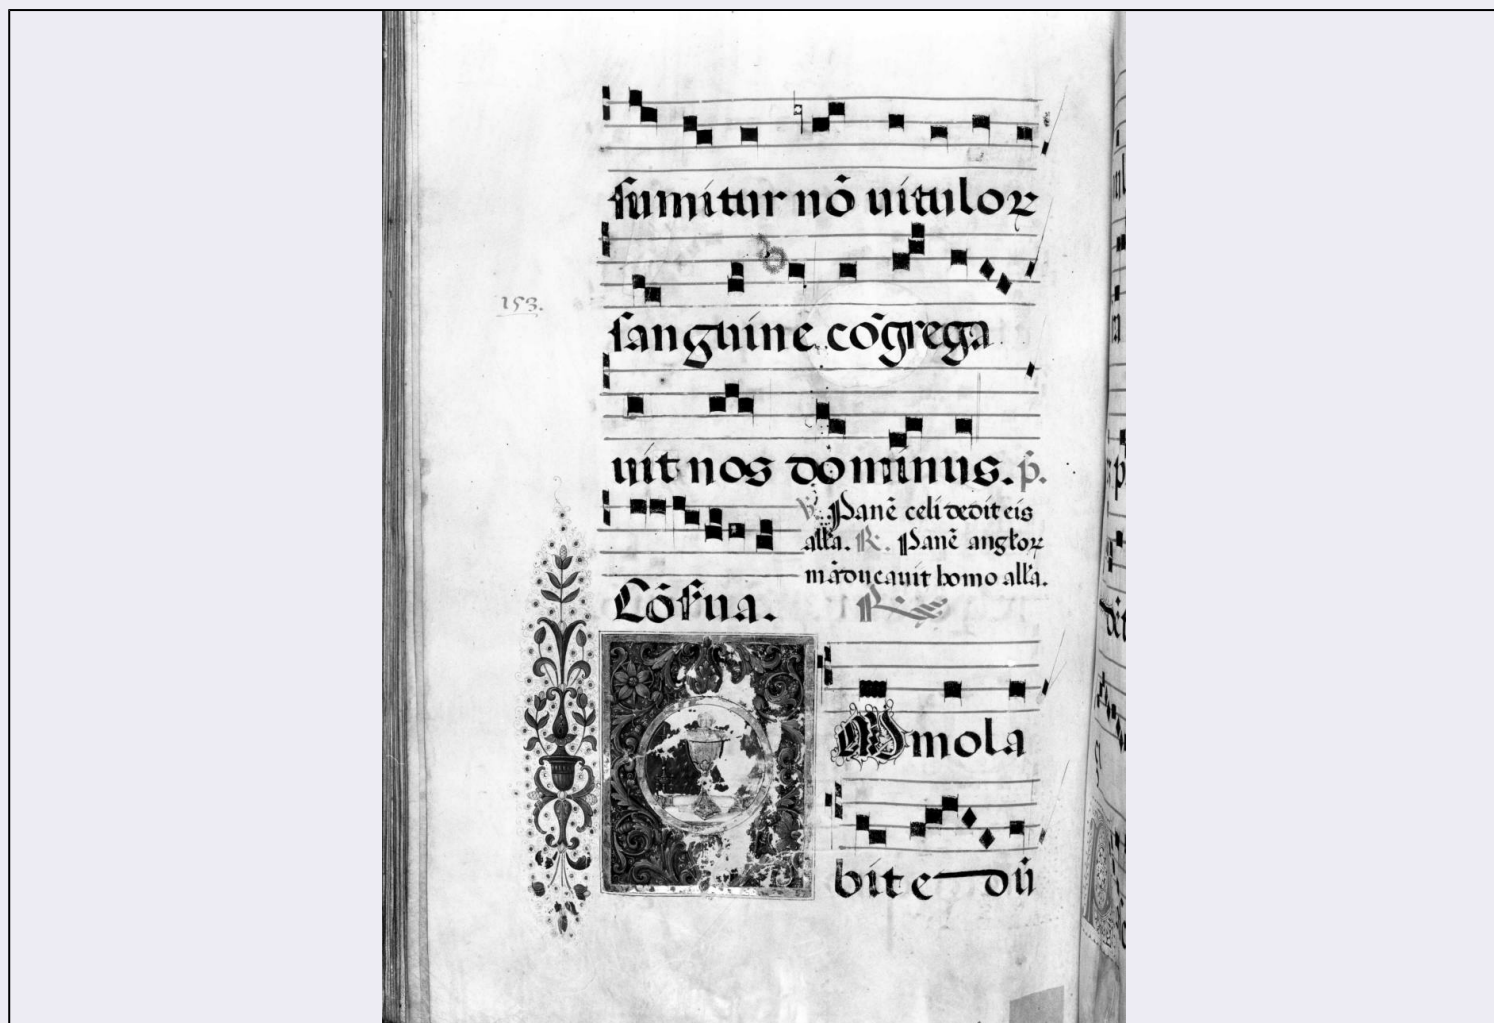 sumitur nō uituloꝝ
153.
sanguine cōgrega
uit nos dominus. p̄.
℣. Panē celi dedit eis
alľa. ℟. Panē angľoꝝ
māducauit homo alľa.
Cōſerua.
mola
bit e dū